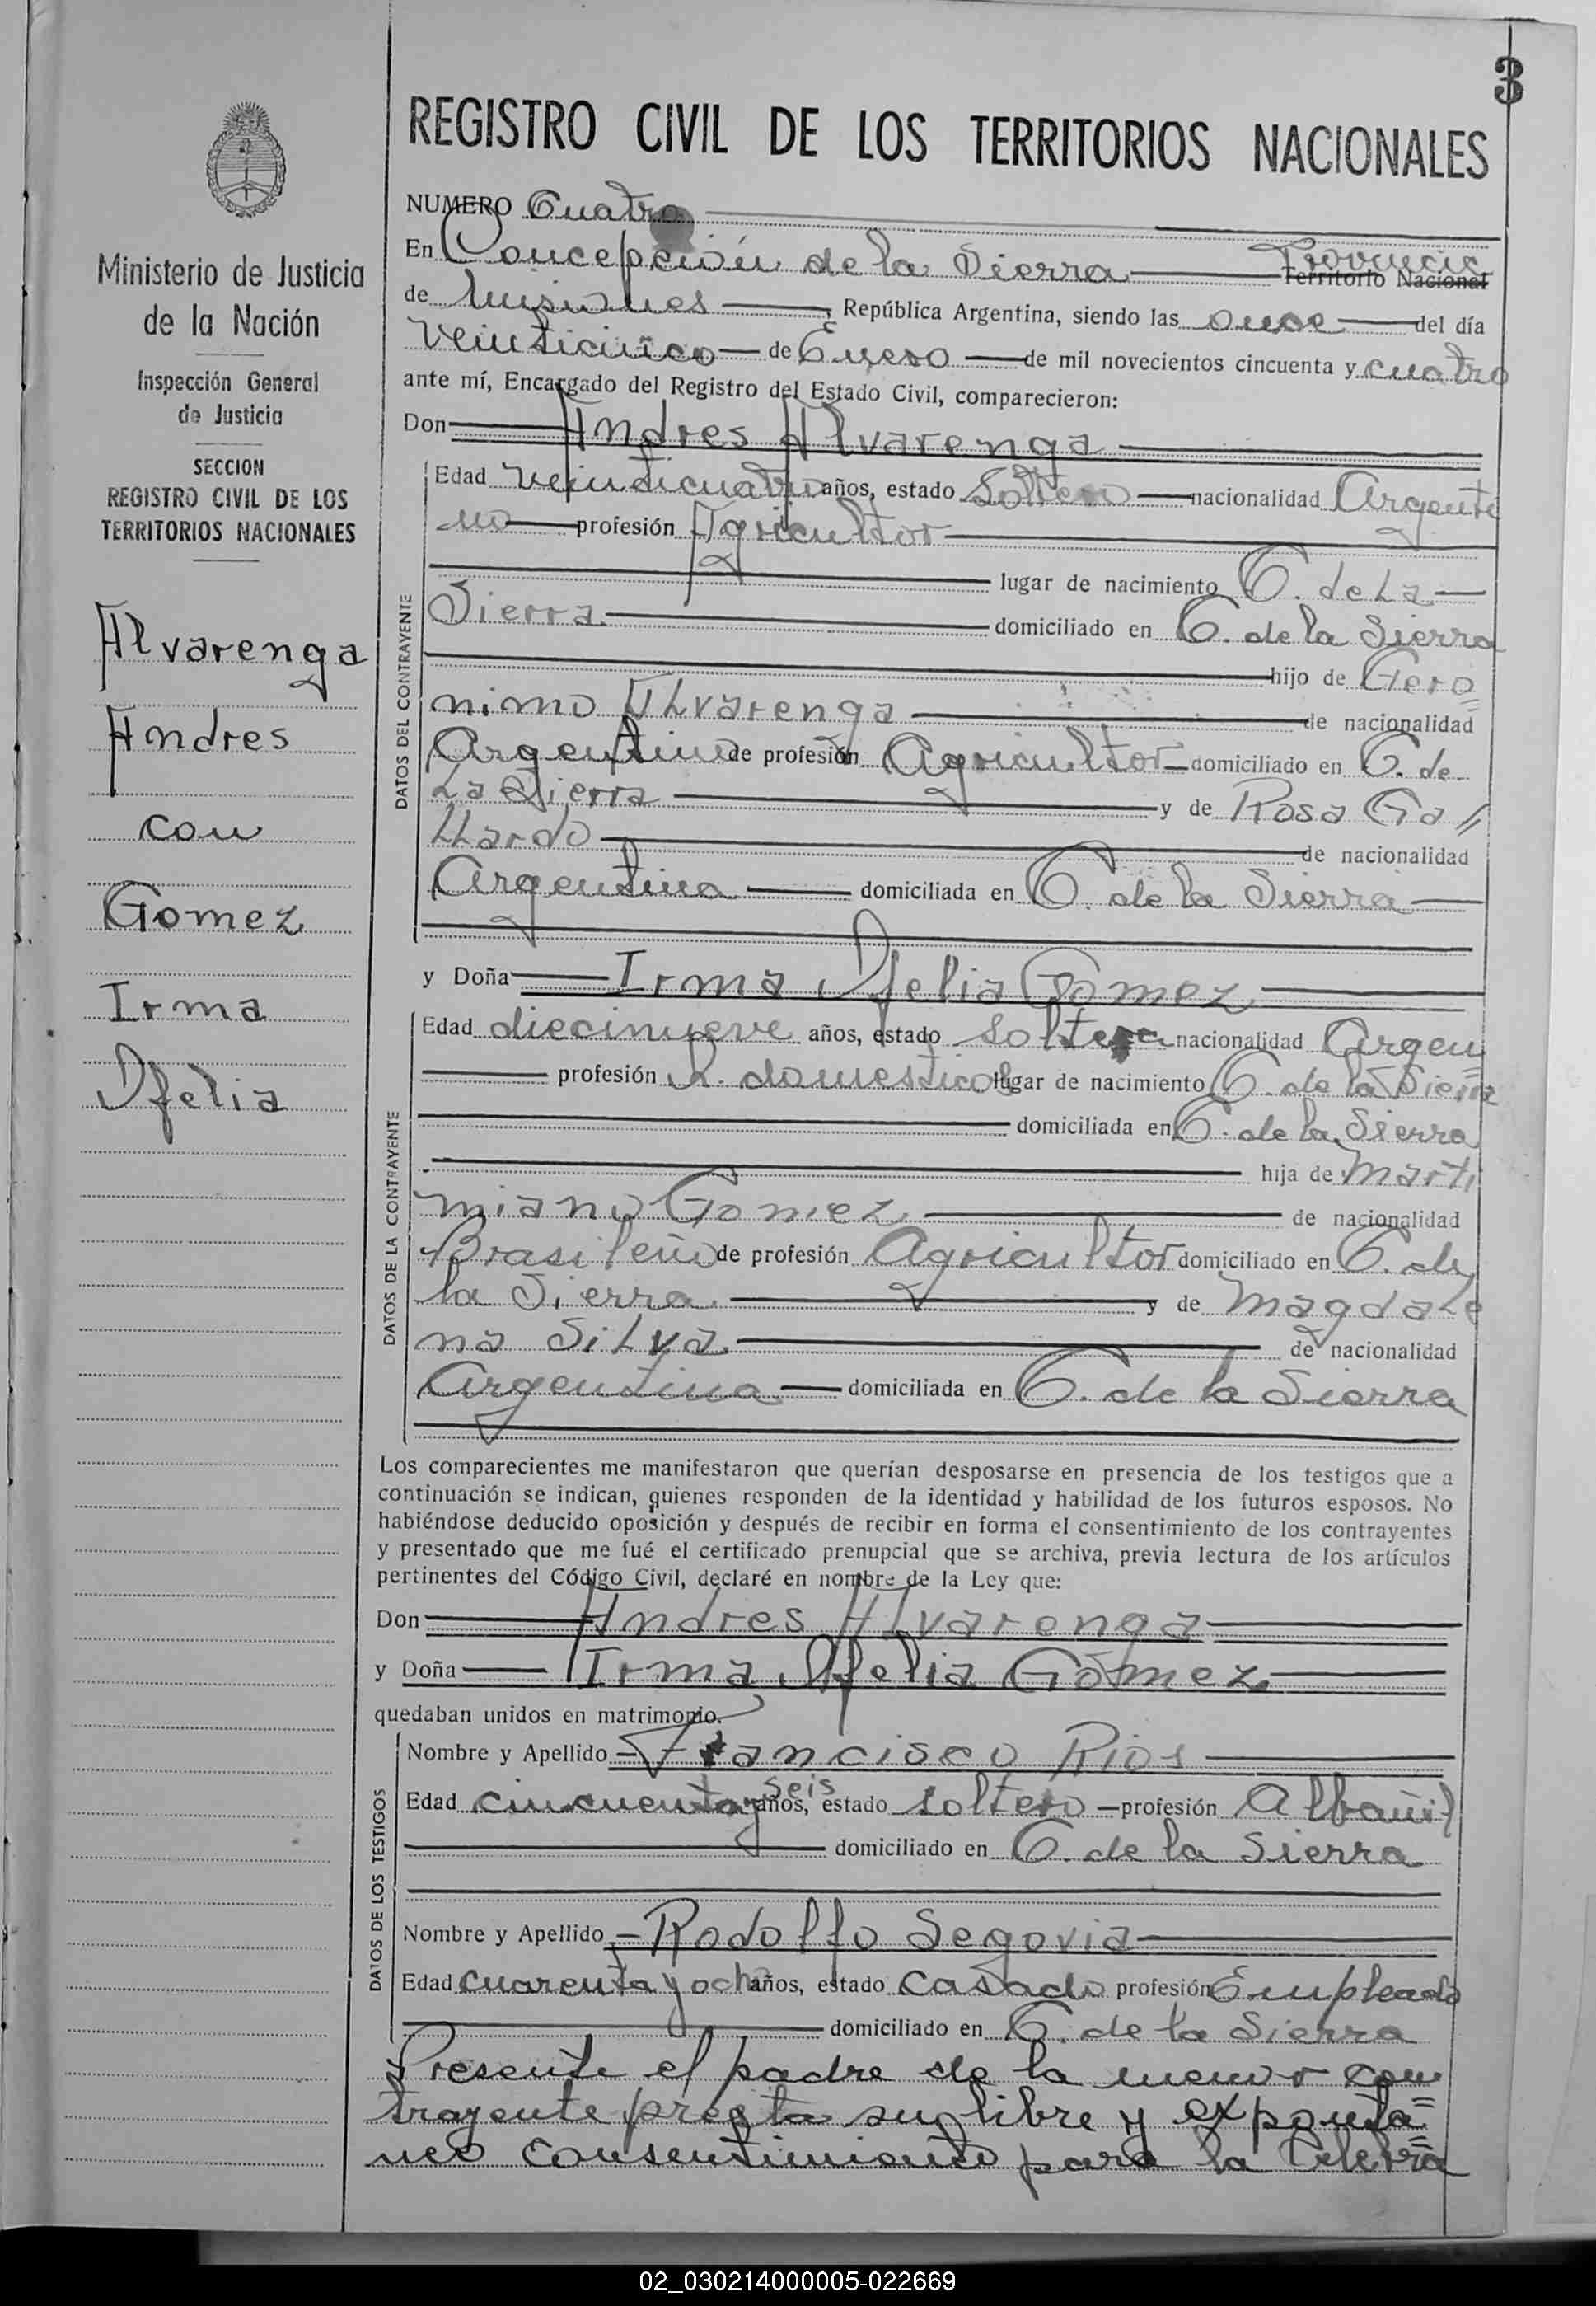 3
REGISTRO CIVIL DE LOS TERRITORIOS NACIONALES
Ministerio de Justicia
de la Nación
Inspección General
de Justicia
SECCION
REGISTRO CIVIL DE LOS
TERRITORIOS NACIONALES
Alvarenga
Andres
con
Gomez
Irma
Ofelia
NUMERO Cuatro
En Concepción de la Sierra Provincia Territorio Nacional
de Misiones, República Argentina, siendo las once del día
Veinticinco de Enero de mil novecientos cincuenta y cuatro
ante mí, Encargado del Registro del Estado Civil, comparecieron:
Don Andres Alvarenga
DATOS DEL CONTRAYENTE
Edad veinticuatro años, estado Soltero nacionalidad Argenti
no profesión Agricultor
lugar de nacimiento C. de La
Sierra domiciliado en C. de la Sierra
hijo de Gero
nimo Alvarenga de nacionalidad
Argentino de profesión Agricultor domiciliado en C. de
La Sierra y de Rosa Ga
llardo de nacionalidad
Argentina domiciliada en C. de la Sierra
y Doña Irma Ofelia Gomez
DATOS DE LA CONTRAYENTE
Edad diecinueve años, estado Soltera nacionalidad Argen
profesión Q. domesticos lugar de nacimiento C. de la Sierra
domiciliada en C. de la Sierra
hija de Marti
miano Gomez de nacionalidad
Brasileño de profesión Agricultor domiciliado en C. de
la Sierra y de Magdale
na Silva de nacionalidad
Argentina domiciliada en C. de la Sierra
Los comparecientes me manifestaron que querían desposarse en presencia de los testigos que a
continuación se indican, quienes responden de la identidad y habilidad de los futuros esposos. No
habiéndose deducido oposición y después de recibir en forma el consentimiento de los contrayentes
y presentado que me fué el certificado prenupcial que se archiva, previa lectura de los artículos
pertinentes del Código Civil, declaré en nombre de la Ley que:
Don Andres Alvarenga
y Doña Irma Ofelia Gomez
quedaban unidos en matrimonio.
DATOS DE LOS TESTIGOS
Nombre y Apellido Francisco Rios
Edad cincuenta y seis años, estado soltero profesión Albañil
domiciliado en C. de la Sierra
Nombre y Apellido Rodolfo Segovia
Edad cuarenta y ocho años, estado Casado profesión Empleado
domiciliado en C. de la Sierra
Presente el padre de la menor con
trayente presta su libre y exponta
neo consentimiento para la Celebra
02_030214000005-022669